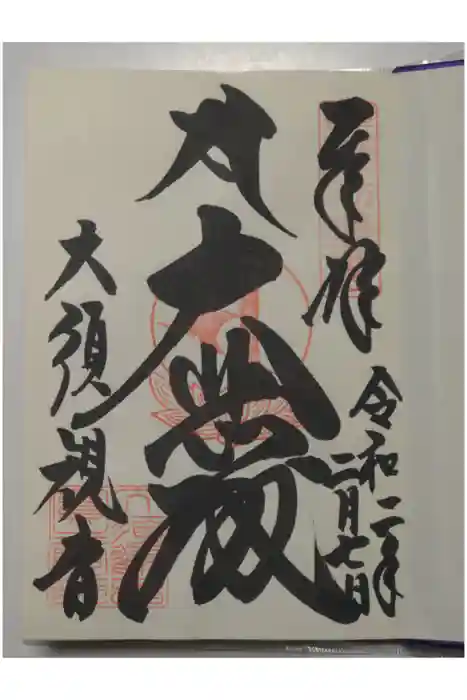 奉拝
令和二年
二月七日
大悲殿
大須観音